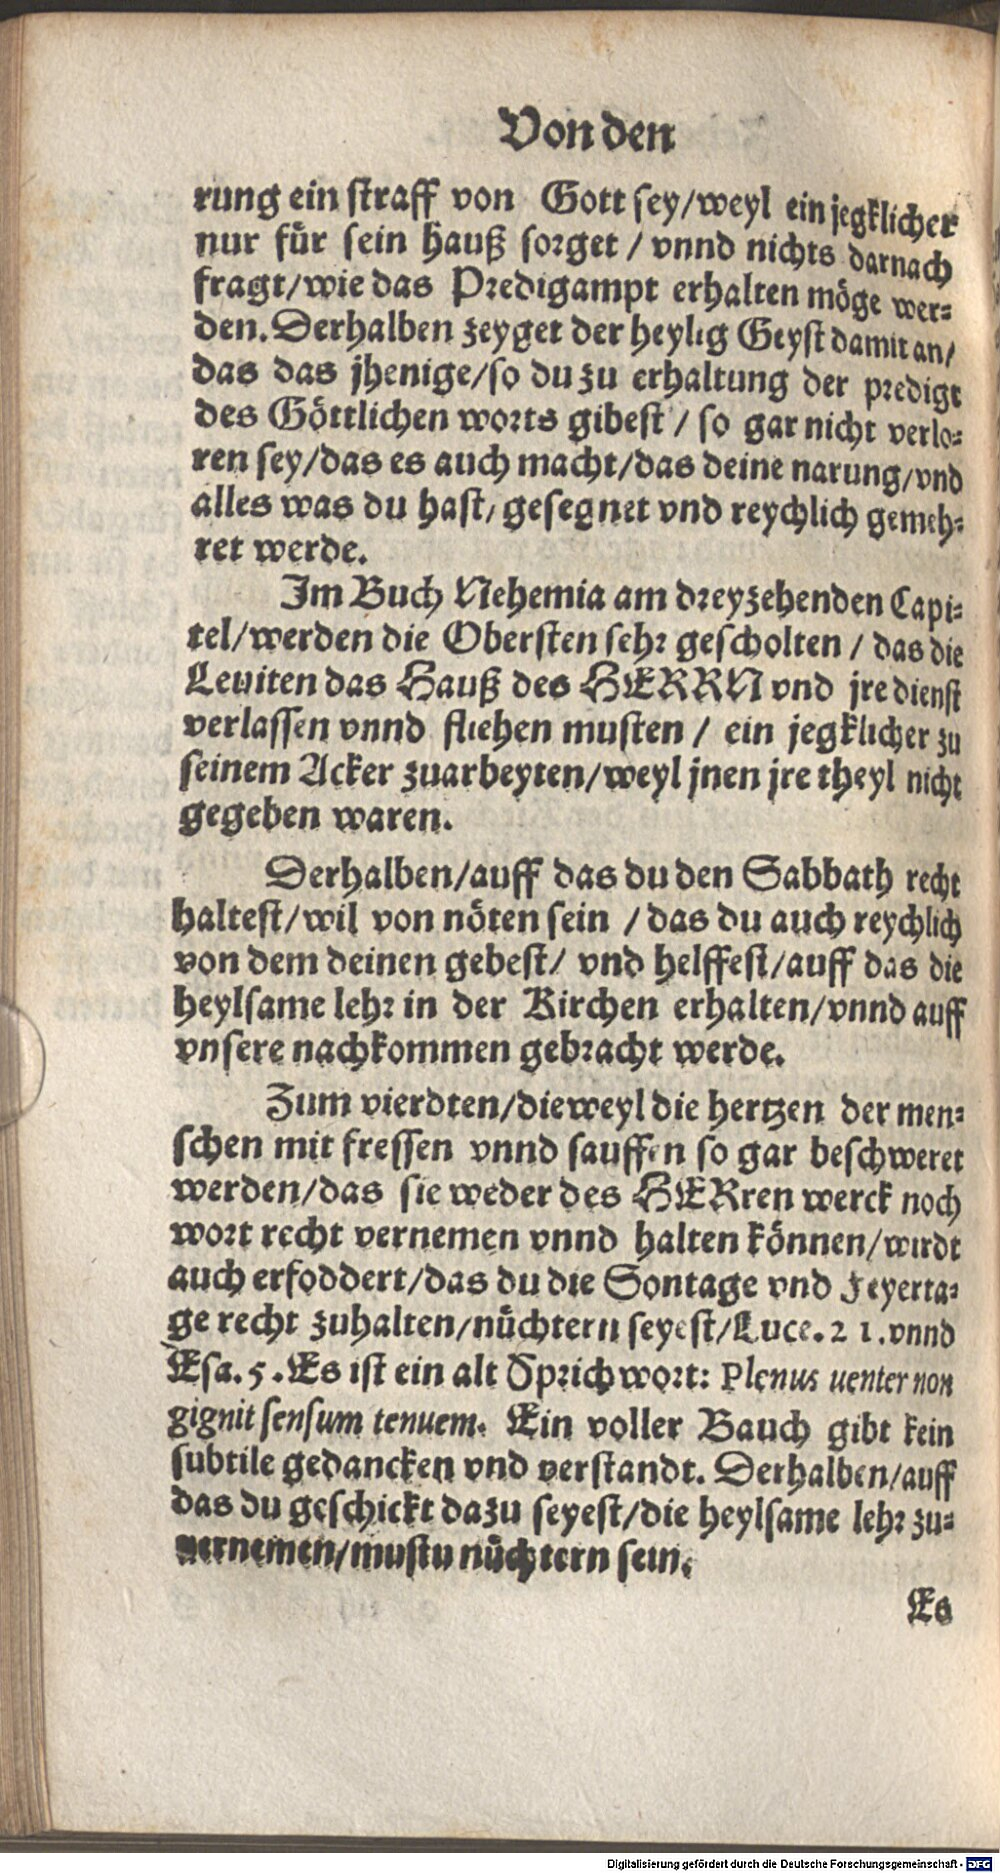 Von den
rung ein straff von Gott sey/weyl ein jegklicher
nur für sein hauß sorget / vnnd nichts darnach
fragt/wie das Predigampt erhalten möge wer-
den. Derhalben zeyget der heylig Geyst damit an/
das das jhenige/so du zu erhaltung der predigt
des Göttlichen worts gibest / so gar nicht verlo-
ren sey/das es auch macht/das deine narung/vnd
alles was du hast/ gesegnet vnd reychlich gemeh-
ret werde.
Im Buch Nehemia am dreyzehenden Capi-
tel/werden die Obersten sehr gescholten / das die
Leuiten das Hauß des HERRN vnd jre dienst
verlassen vnnd fliehen musten / ein jegklicher zu
seinem Acker zuarbeyten/weyl jnen jre theyl nicht
gegeben waren.
Derhalben/auff das du den Sabbath recht
haltest/wil von nöten sein / das du auch reychlich
von dem deinen gebest/ vnd helffest/auff das die
heylsame lehr in der Kirchen erhalten/vnnd auff
vnsere nachkommen gebracht werde.
Zum vierdten/dieweyl die hertzen der men-
schen mit fressen vnnd sauffen so gar beschweret
werden/das sie weder des HERren werck noch
wort recht vernemen vnnd halten können/wirdt
auch erfoddert/das du die Sontage vnd Feyerta-
ge recht zuhalten/nüchtern seyest/Luce. 21. vnnd
Esa. 5. Es ist ein alt Sprichwort: Plenus uenter non
gignit sensum tenuem. Ein voller Bauch gibt kein
subtile gedancken vnd verstandt. Derhalben/auff
das du geschickt dazu seyest/die heylsame lehr zu-
uernemen/mustu nüchtern sein.
Es
Digitalisierung gefördert durch die Deutsche Forschungsgemeinschaft - DFG